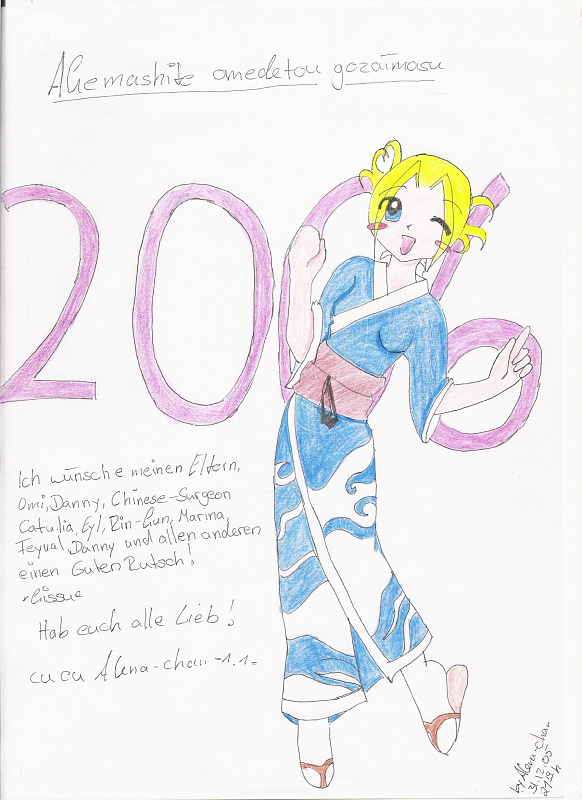 Akemashite omedetou gozaimasu
2006
Ich wünsche meinen Eltern,
Omi, Danny, Chinese-Surgeon
Catulia, Eyl, Rin-Kun, Marina,
Feyval, Danny und allen anderen
einen Guten Rutsch!
Hab euch alle Lieb!
cu cu Akna-chan
by Akna-chan
31.12.05